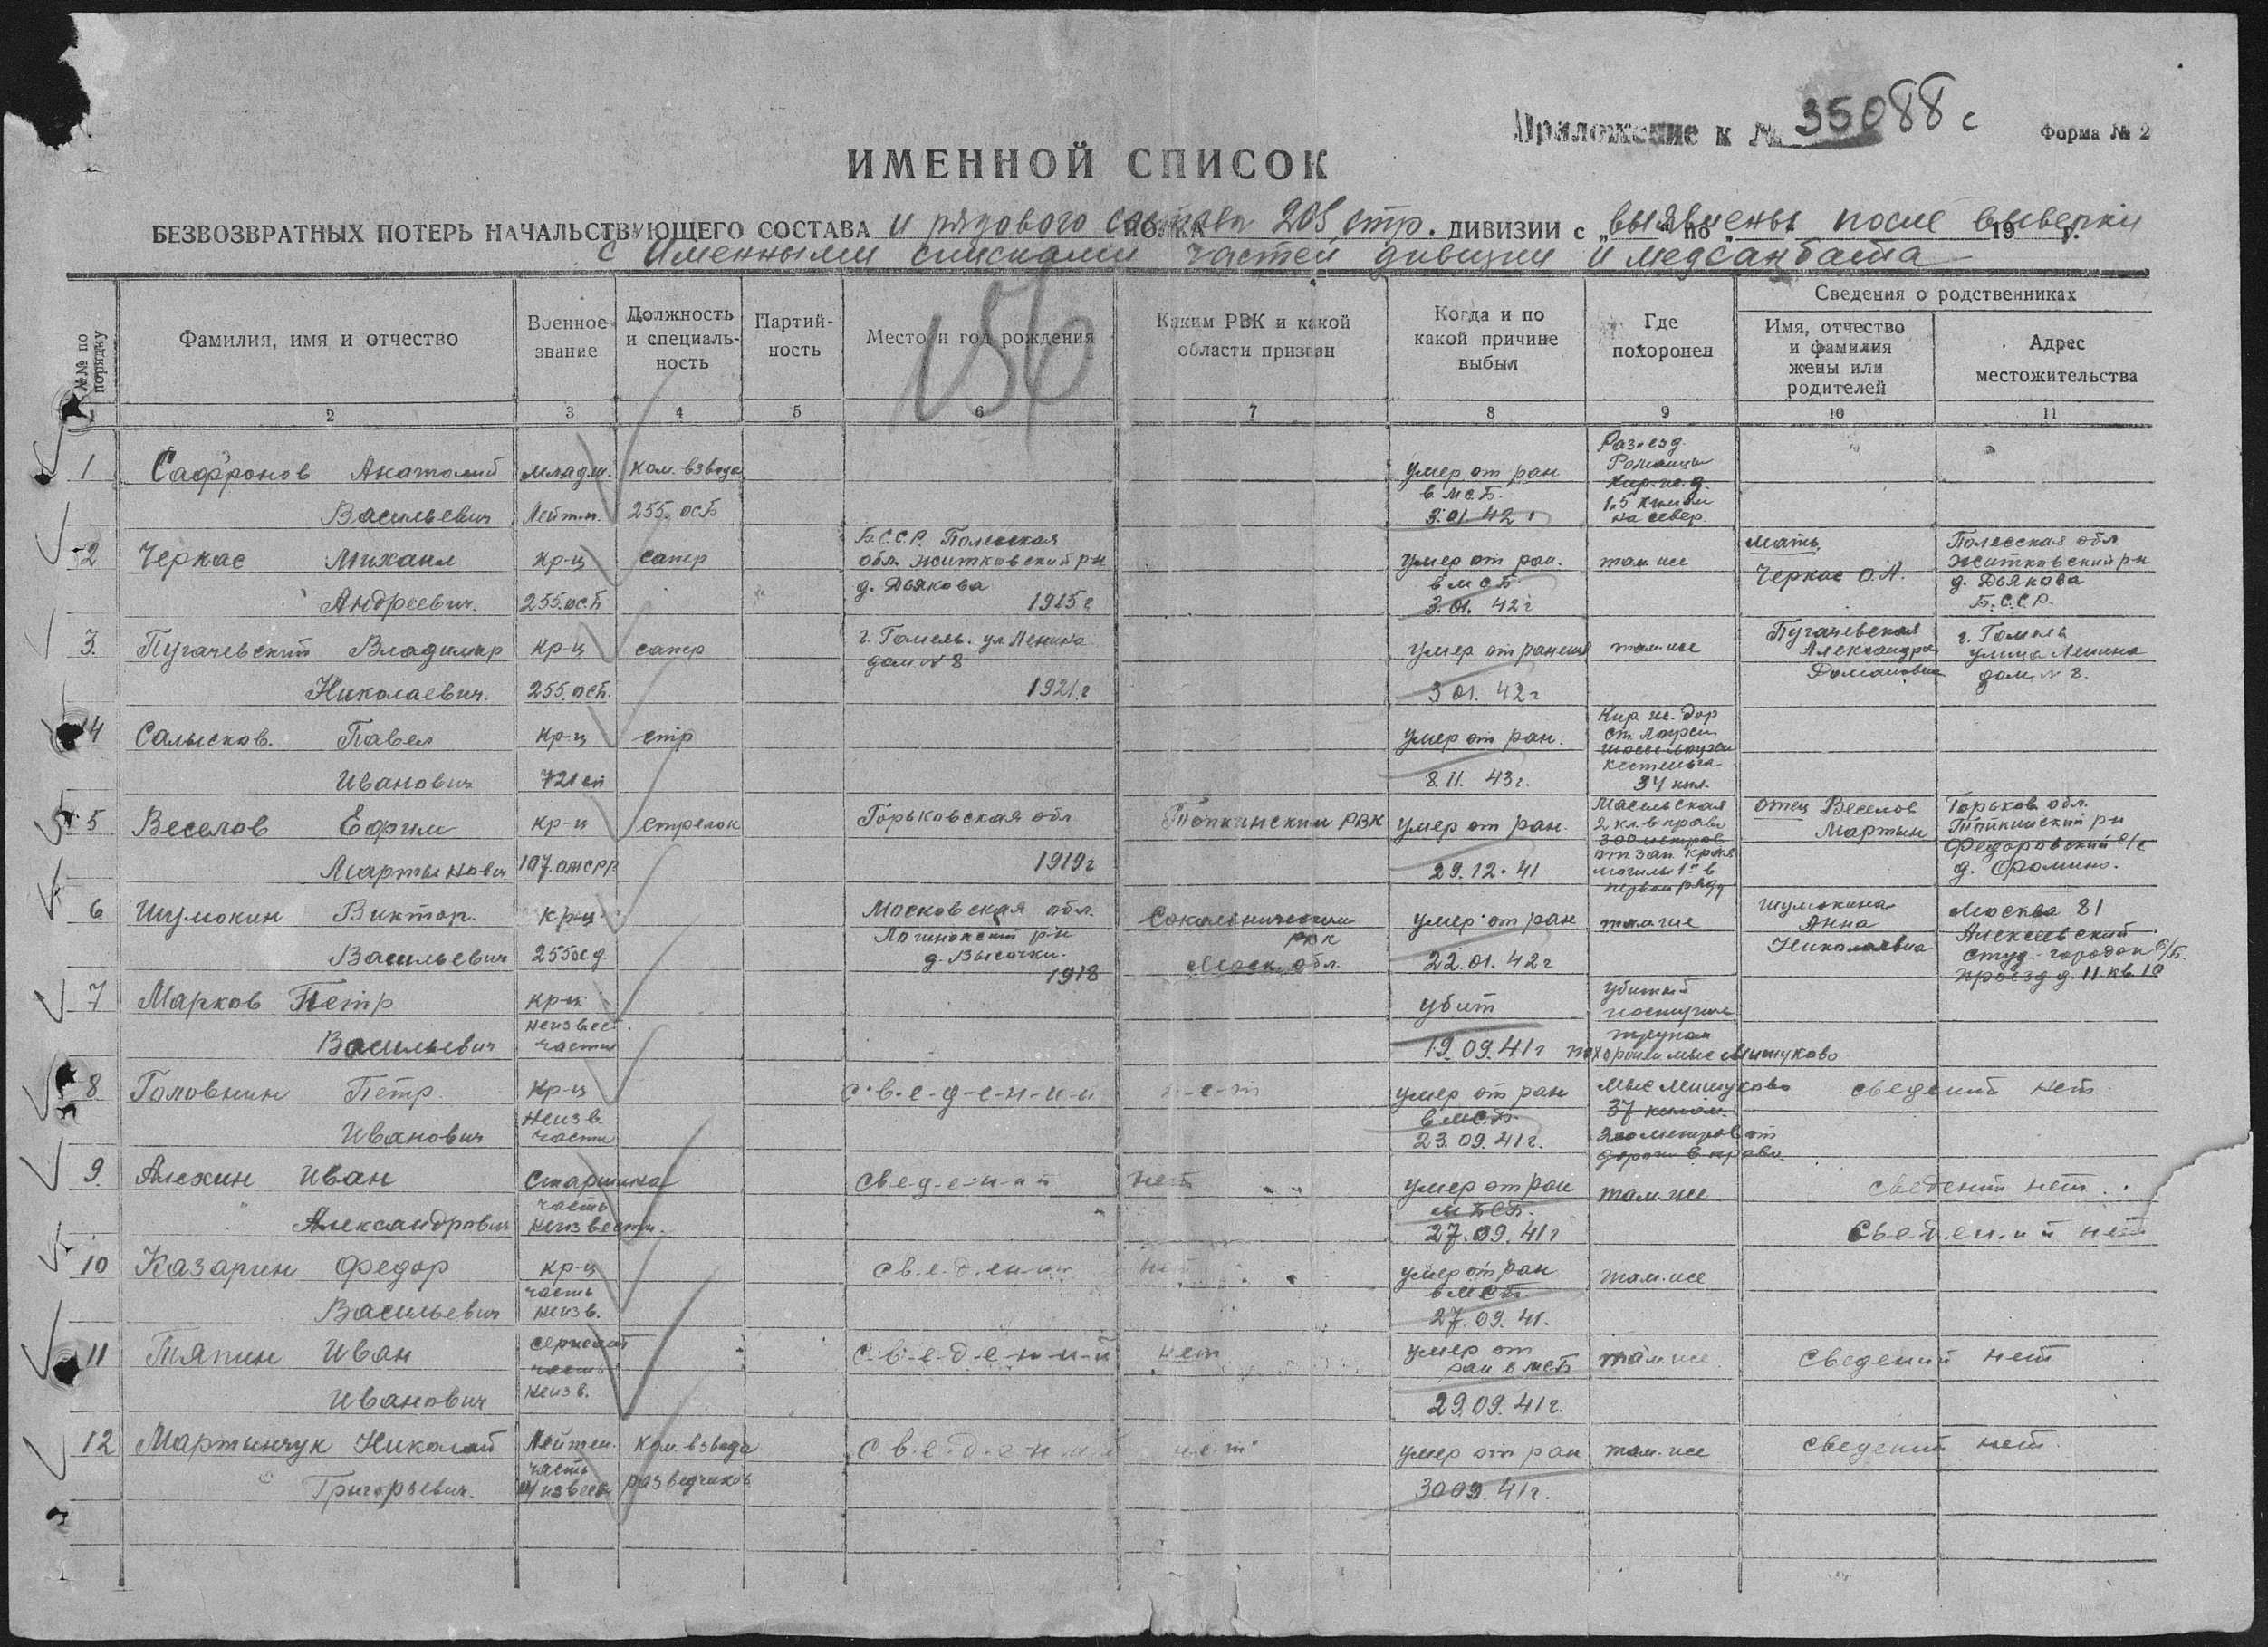 Приложение к № 35088с
Форма № 2
ИМЕННОЙ СПИСОК
БЕЗВОЗВРАТНЫХ ПОТЕРЬ НАЧАЛЬСТВУЮЩЕГО СОСТАВА и рядового состава 205 стр. ДИВИЗИИ с „выявлены по после выверки 19 г.
с Именными списками частей дивизии и медсанбата
156
№№ по порядку
Фамилия, имя и отчество
Военное звание
Должность и специальность
Партийность
Место и год рождения
Каким РВК и какой области призван
Когда и по какой причине выбыл
Где похоронен
Сведения о родственниках
Имя, отчество и фамилия жены или родителей
Адрес местожительства
2 3 4 5 6 7 8 9 10 11
1 Сафронов Анатолий младш. ком. взвода умер от ран Разъезд
Васильевич Лейт-н. 255. осб в МСБ. Кир. ж. д.
3.01.42 на север.
2 Черкас Михаил кр-ц сапер Б.С.С.Р. Полесская умер от ран. там же мать Полесская обл
обл. Житковский р-н в МСБ Черкас О.А. Житковский р-н
Андреевич. 255.осб д. Дьякова 1915г 3.01.42г д. Дьякова
Б.С.С.Р.
3. Пугачевский Владимир кр-ц сапер г. Гомель. ул Ленина умер от ранения там же Пугачевская г. Гомель
дом № 8 Александра улица Ленина
Николаевич. 255.осб. 1921.г 3 01. 42г дом № 8.
4 Салысков. Павел кр-ц стр умер от ран. Кир. ж. дор
Иванович 721 сп 8.11.43г. кестеньга
37 кил.
5 Веселов Ефим кр-ц стрелок Горьковская обл РВК умер от ран. Масельская отец Веселов Горьков. обл.
2 кл. вправо Мартын
300 метров
Мартынович 1919г 29.12.41 могила 1я в д. Фомино.
первом ряду
6 Шумокин Виктор. кр-ц Московская обл. Сокольническим умер от ран там же Шумокина Москва 81
р-н РВК Анна Алексеевский
Васильевич 255осб д. Высочки. Моск. обл. 22.01.42г Николаевна студ-городок
1918 проезд д. 11 кв 10
7 Марков Петр кр-ц убит убитый
неизвест. поступил
Васильевич части 19.09.41г трупом
похоронен мыс Мишуково
8 Головнин Петр. кр-ц с-в-е-д-е-н-и-й н-е-т умер от ран мыс Мишуково сведений нет
Неизв. в МСБ. 37 килом.
Иванович части 23.09.41г. 200 метров от
дороги вправо.
9. Алехин Иван Старшина свед-е-н-ий нет умер от ран там же сведений нет
часть
Александрович неизвестн. 27.09.41г Св-е-д-ен-и й нет
10 Казарин Федор кр-ц св.е-д-ен-ий нет умер от ран там же
часть в МСБ.
Васильевич неизв. 27.09.41.
11 Тяпин Иван сержант с-в-е-д-е-н-и-й нет умер от там же сведений нет
часть ран в МСБ
Иванович неизв. 29.09.41г.
12 Мартынчук Николай Лейтен. ком. взвода с-в-е-д-е-н-и-й н-е-т умер от ран там же сведений нет
часть
Григорьевич. разведчиков 30 09. 41г.